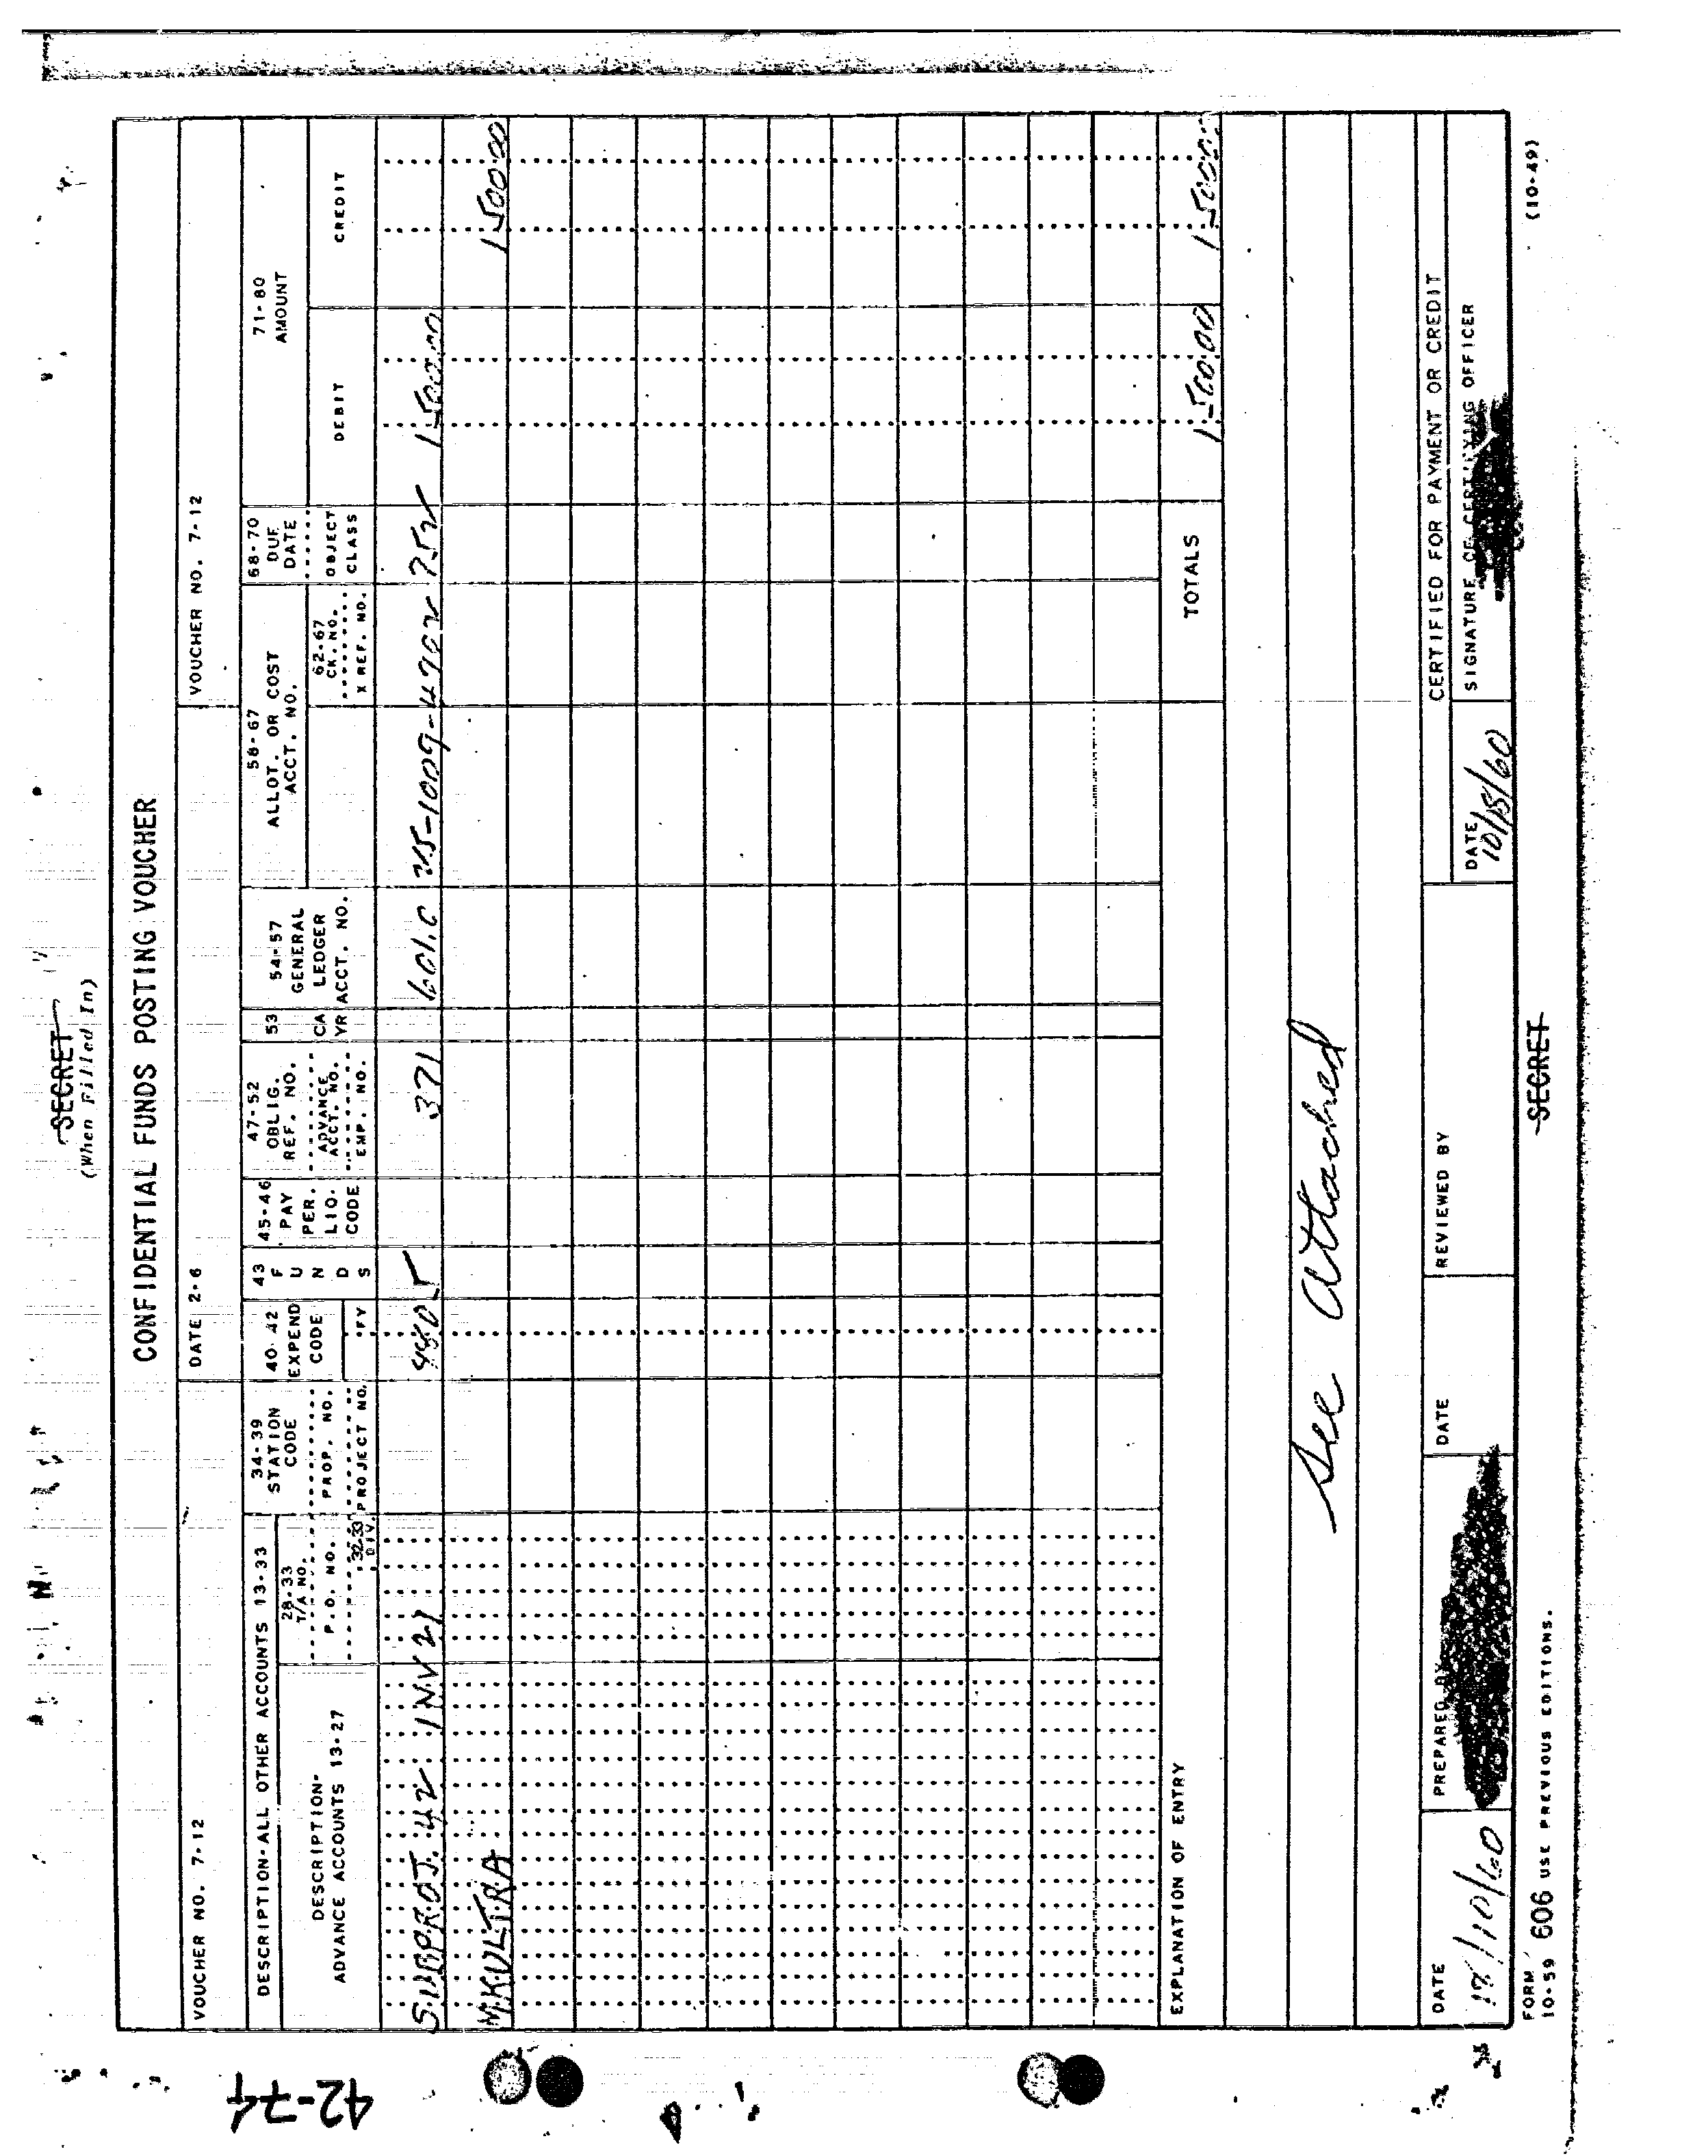 SECRET
(When Filled In)
CONFIDENTIAL FUNDS POSTING VOUCHER
VOUCHER NO. 7-12 DATE 2-6 VOUCHER NO. 7-12
DESCRIPTION-ALL OTHER ACCOUNTS 13-33
DESCRIPTION-
ADVANCE ACCOUNTS 13-27
28-33
T/A NO.
P.O. NO.
32-33
DIV.
34-39
STATION
CODE
PROP. NO.
PROJECT NO.
40-42
EXPEND
CODE
FY
43
F
U
N
D
S
45-46
PAY
PER.
LIQ.
CODE
47-52
OBLIG.
REF. NO.
ADVANCE
ACCT. NO.
EMP. NO.
53
CA
YR
54-57
GENERAL
LEDGER
ACCT. NO.
58-67
ALLOT. OR COST
ACCT. NO.
62-67
CK. NO.
X REF. NO.
68-70
DUE
DATE
OBJECT
CLASS
71-80
AMOUNT
DEBIT
CREDIT
SUBPROJ. 42 INV 21 371 601.0 1500.00
MKULTRA 1500.00
TOTALS 1500.00 1500.00
EXPLANATION OF ENTRY
See Attached
CERTIFIED FOR PAYMENT OR CREDIT
DATE PREPARED BY DATE REVIEWED BY DATE SIGNATURE OF CERTIFYING OFFICER
10/18/60
FORM
10-59 606 USE PREVIOUS EDITIONS. SECRET (10-49)
42-74